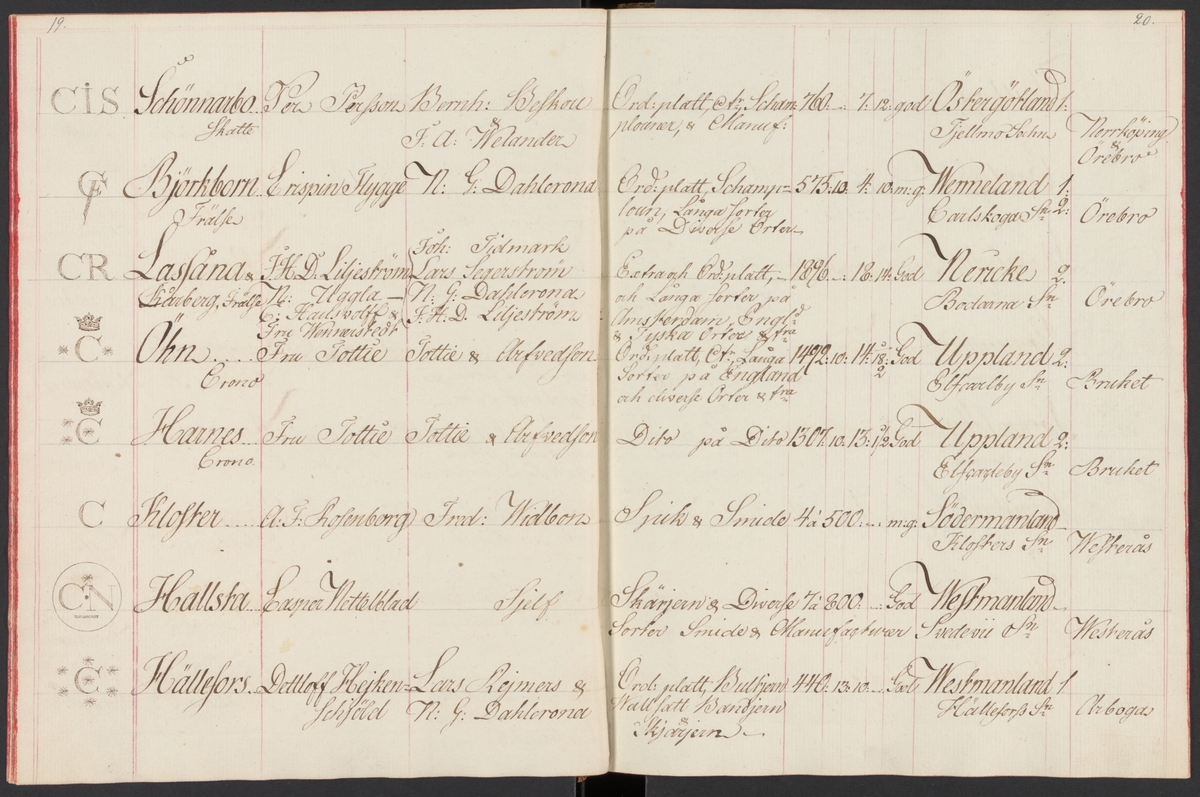 19.
20.
CIS Schönnarbo Per Persson Bernh: Beskou Ord: platt, Ctr, Scham 760... 7: 12: god Östergötland 1:
Skatte & ploaner, & Manuf: Tjellmo Sohn Norrköping
F. A: Welander & Örebro
CF Björkborn Crispin Flygge N: G: Dahlcrona Ord: platt, Schamp= 575: 10. 4: 10. m:g: Wermeland 1:
Frälse loun, Långa Sorter Carlskoga Sn 2: Örebro
på Diverse Orter
Joh: Tidmark
CR Lassåna & J.H.D. Liljeström Lars Segerström Extra och Ord: platt, 1896... 18: 14: God Nericke 2.
Kårberg, Frälse N: Uggla N: G: Dahlcrona och Långa Sorter på Bodarna Sn Örebro
C: Haulswolff & J. H. D. Liljeström Amsterdam, Engl:
Fru Wennerstedt & Tyska Orter & fra
*C* Öhn.... Fru Tottie Tottie & Arfvedson Ord: platt, Ctr, Långa 1492: 10: 14: 18: God Uppland 2:
Crono Sorter på England Elfcarlby Sn Bruket
och diverse Orter & fra
C Harnes Fru Tottie Tottie & Arfvedson Dito på Dito 1307. 10: 13: 1/2 God Uppland 2:
Crono. Elfcarleby Sn Bruket
C Kloster..... A: F: Rosenborg Fred: Widbom Spik & Smide 4 à 500.... m:g: Södermanland
Klosters Sn Westerås
CN Hallsta Casper Nettelblad Sjelf Skärjern & Diverse 7 à 800. God Westmanland
Sorter Smide & Manufacturer Svedevii Sn Westerås
*C* Hällefors. Dettloff Heijken= Lars Rejmers & Ord: platt, Bultjern 442: 13: 10.... God Westmanland 1
Schföld N: G: Dahlcrona Wallsatt Bandjern Hällefors Sn Arboga
& Skjärjern